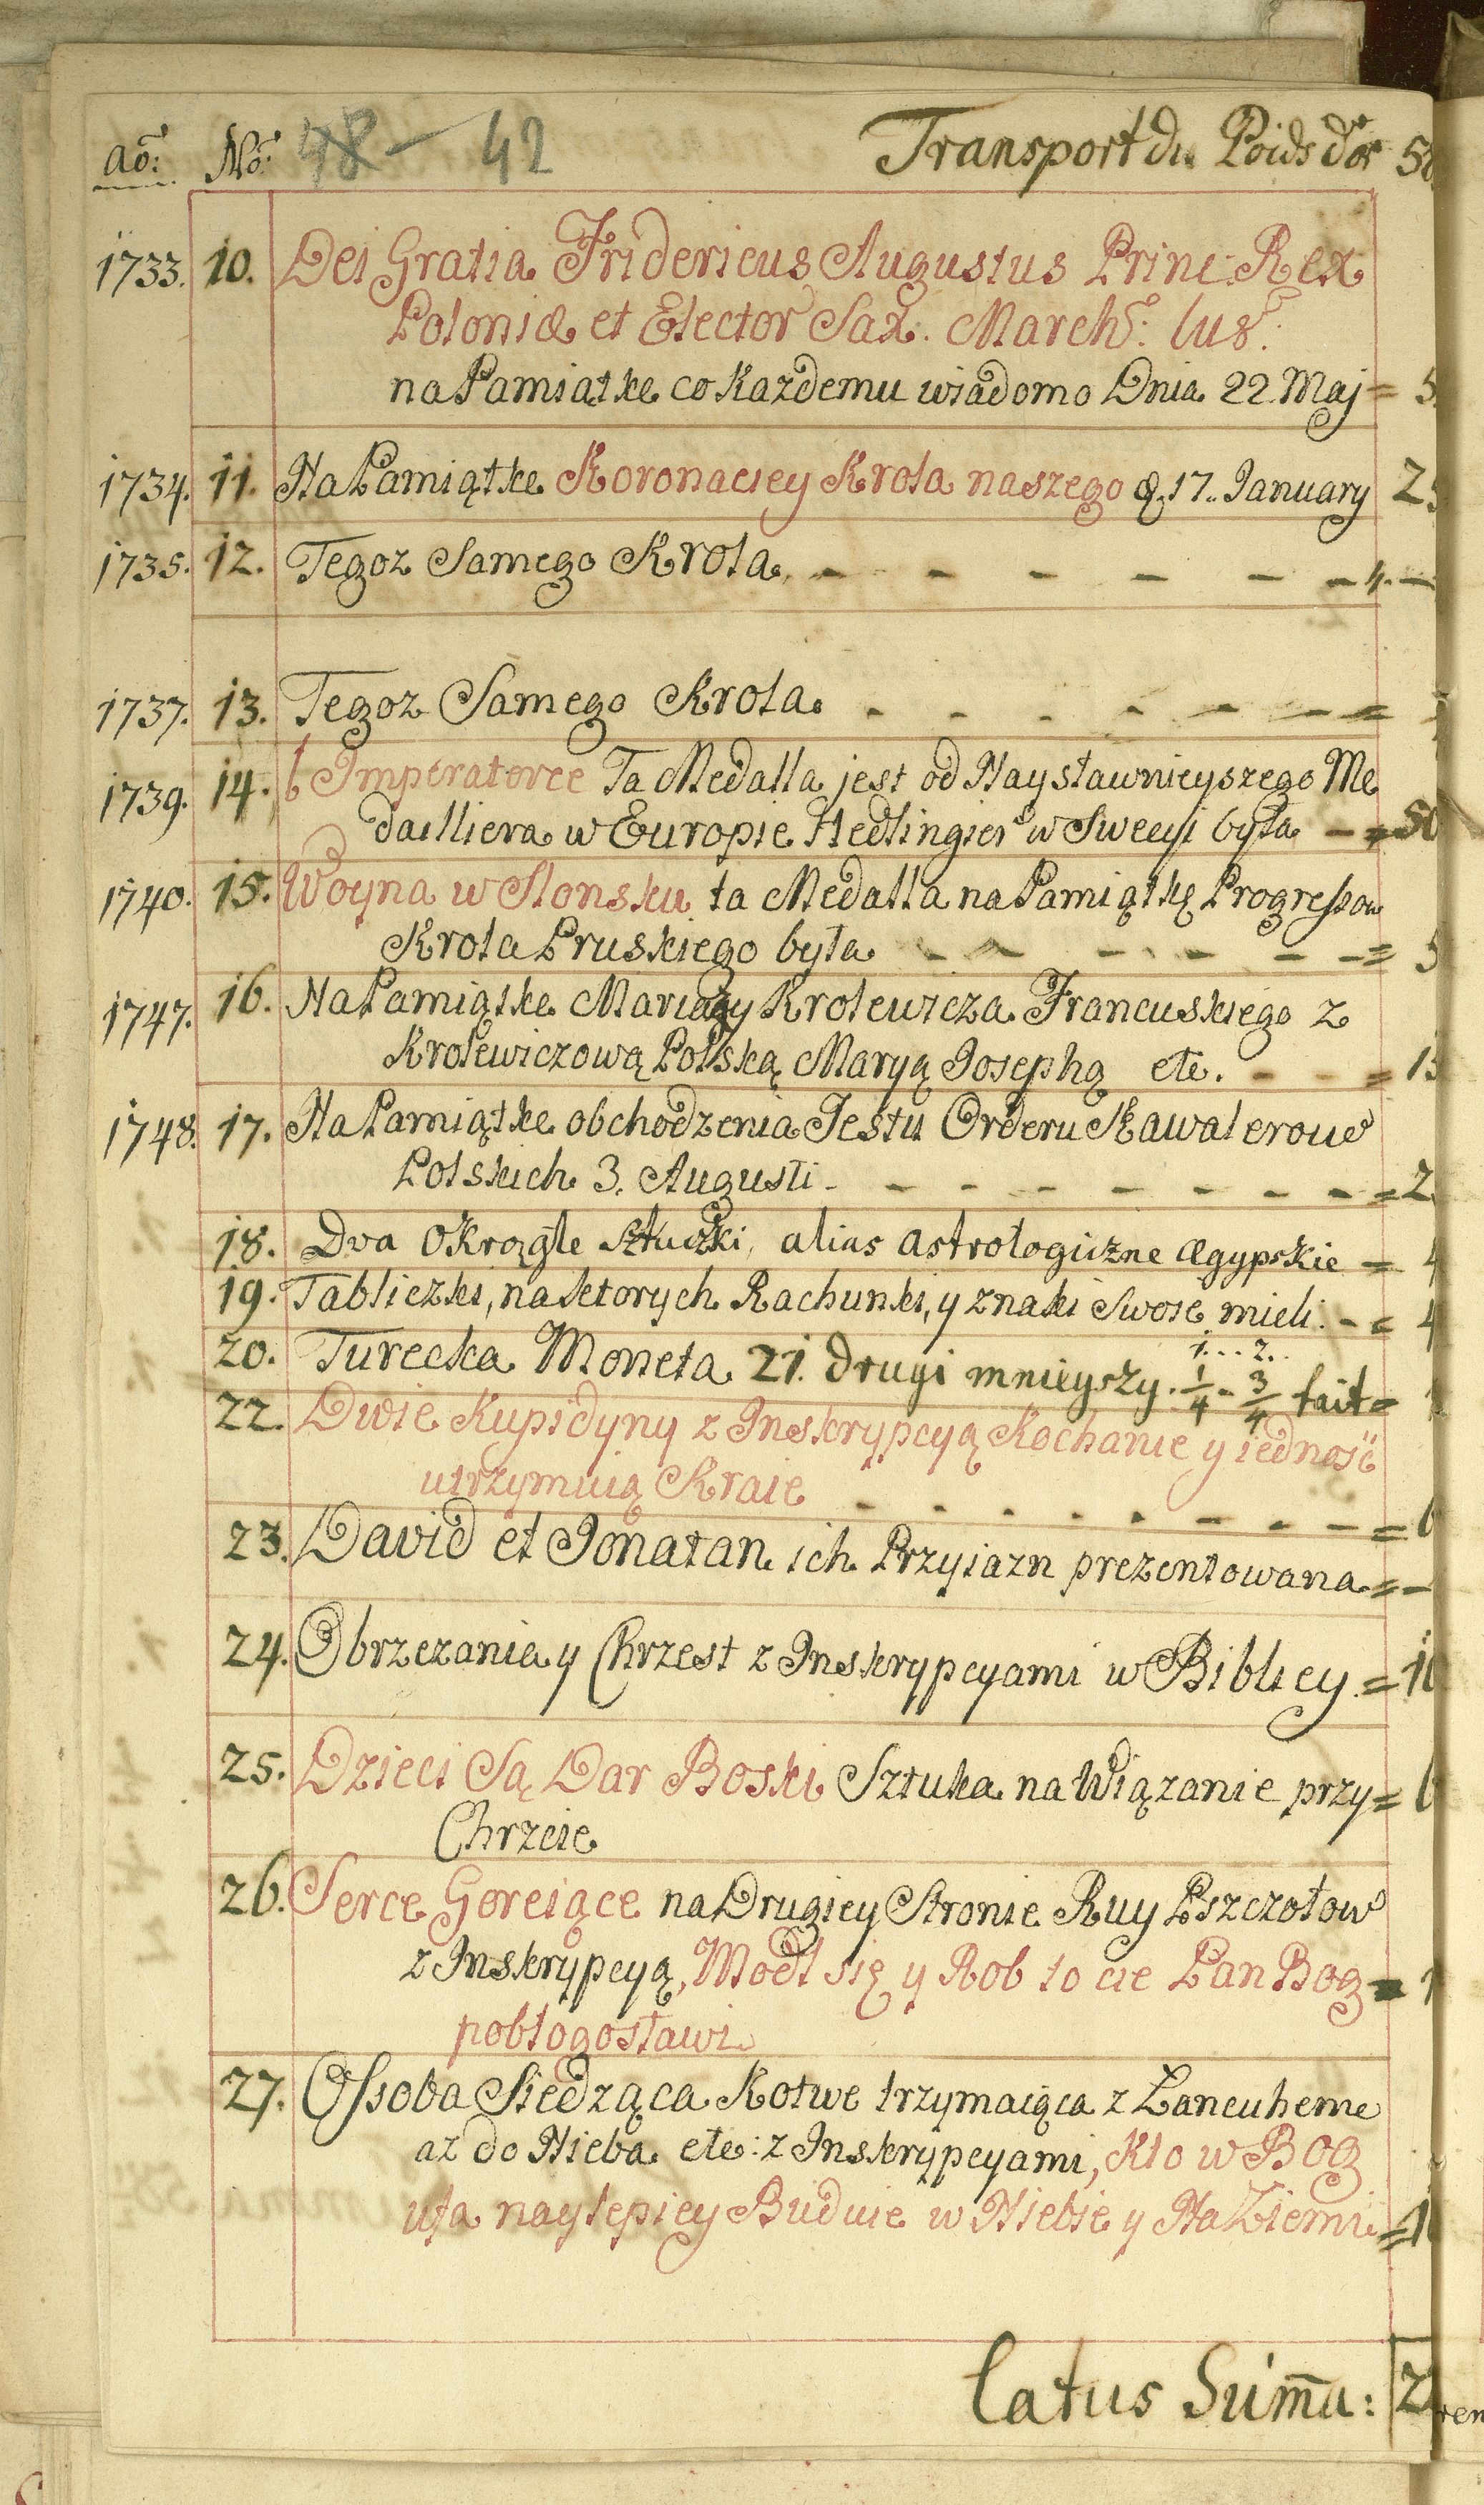 aõ: Nõ: 48 - 42 Transport du Poids d'or 50
1733. 10. Dei Gratia Fridericus Augustus Princ: Rex
Poloniæ et Elector Sax: March: lus:
na Pamiątke co Kazdemu wiadomo Dnia 22. Maj = 5
1734. 11. Na Pamiątke Koronaciey Krola naszego d. 17. January 2
1735. 12. Tegoz Samego Krola - - - - - - 4. -
1737. 13. Tegoz Samego Krola. - - - - - - =
1739. 14. b Imperatorce Ta Medalla jest od Naysławnieyszego Me
dailliera w Europie Hedlingier w Swecyi była - = 50
1740. 15. Woyna w Slonsku ta Medalla na Pamiątkę Progressow
Krola Pruskiego była - - - - - - = 5
1747. 16. Na Pamiątke Mariaży Krolewicza Francuskiego z
Krolewiczową Polską Maryą Josephą etc. - - = 15
1748. 17. Na Pamiątke obchodzenia Festu Orderu Kawalerow
Polskich 3. Augusti - - - - - - - - = 2
18. Dva okrągłe sztuczki, alias astrologiczne ægypskie = 4
19. Tabliczki, na ktorych Rachunki, y znaki swoie mieli. - = 4
1. . . 2. .
20. Turecka Moneta 21. drugi mnieyszy. 1/4 - 3/4 fait =
22. Dwie Kupidyny z Inskrypcyą Kochanie y iedność
utrzymuią Kraie - - - - - - - - = 6
23. David et Jonatan ich Przyiazn prezentowana = -
24. Obrzezania y Chrzest z Inskrypcyami w Bibliey. = 10
25. Dzieci Są Dar Boski Sztuka na Wiązanie przy = 6
Chrzcie
26. Serce Goreiące na Drugiey Stronie Ruy Pszczołow
z Inskrypcyą, Modl się y Rob to cie Pan Bog = 1
pobłogosławi.
27. Ossoba Siedząca Kotwe trzymaiąca z Łancuheme
az do Nieba etc: z Inskrypcyami, Kto w Bog
ufa naylepiey Buduie w Niebie y Na Ziemi = 1
Latus Sum̄a: 2